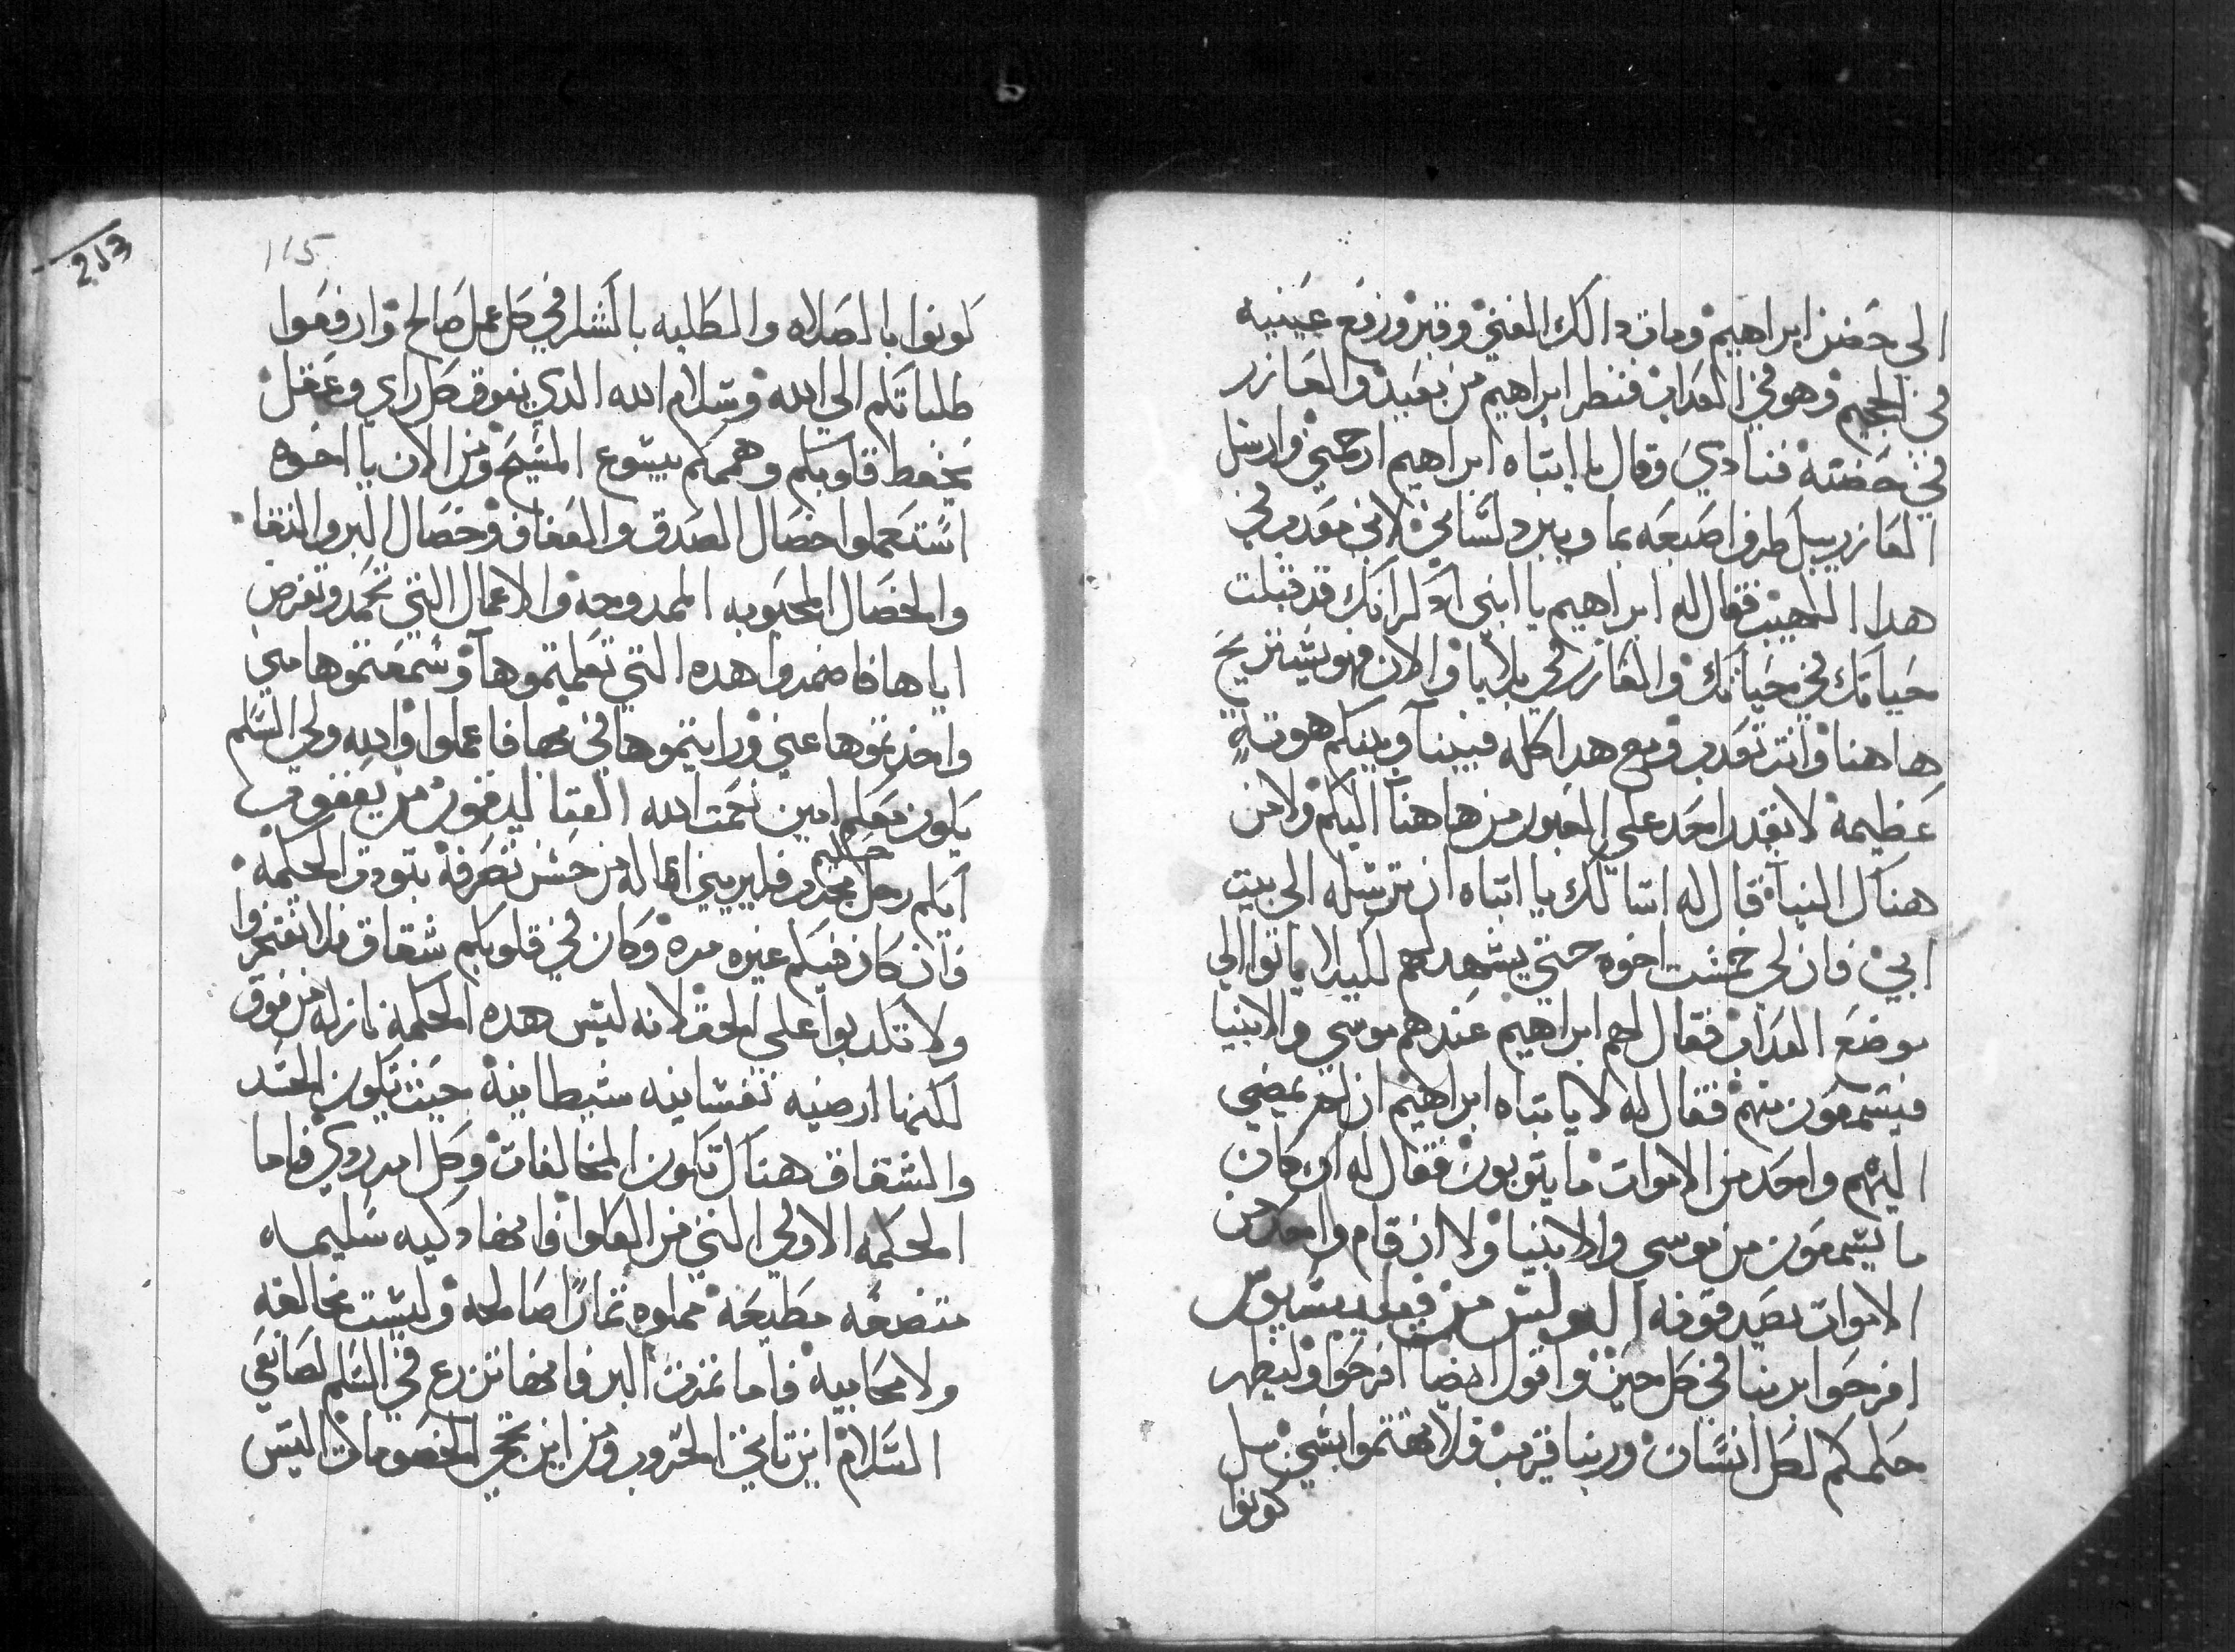 الي حضن ابراهيم ومات دالك الغني وقبر ورفع عينيه
في الجحيم وهو في العداب فنظر ابراهيم من بعيد والعازر
في حضنه فنادي وقال يا ابتاه ابراهيم ارحمني وارسل
العازر يبل طرف اصبعه بما ويبرد لساني لاني معدب في
هدا اللهيب فقال له ابراهيم يا ابني ادكر انك قد قبلت
خياتك في حياتك والعازر في بلايا والان فهو يستريح
ها هنا وانت تعدب ومع هدا كله فبيننا وبينكم هوته
عظيمه لا يقدر احد علي العبور من هاهنا اليكم ولا من
هناك الينا قال له اسالك يا ابتاه ان ترسله الي بيت
ابي فان لي خمست اخوه حتي يشهد لهم لكيلا ياتوا الي
موضع العداب فقال لهم ابراهيم عندهم موسي والانبيا
فيسمعون منهم فقال له لا يا بتاه ابراهيم ان لم يمضي
اليهم واحد من الاموات ما يتوبون فقال له ان كان
ما يسمعون من موسي والانبيا ولا ان قام واحد من
الاموات يصدقونه البولس من فيليبسيوس
افرحوا بربنا في كل حين واقول ايضا افرحوا وليظهر
حلمكم لكل انسان وربنا قريب ولا تهتموا بشي بل
كونوا
213
115
كونوا بالصلاه والطلبه بالشكر في كل عمل صالح وارفعوا
طلباتكم الي الله وسلام الله الدي يفوق كل راي وعقل
يحفظ قلوبكم وهممكم بيسوع المسيح ومن الان يا اخوه
استعملوا خصال الصدق والعفاف وخصال البر والنقا
والخصال المحبوبه الممدوحه والاعمال التي تحمد وتفرض
اياها فاصمدوا هده التي تعلمتموها وسمعتموها مني
واخدتموها عني ورايتموها في بها فاعملوا والله ولي السلم
يكون معكم امين نعمت الله القتاليقون من يعقوب
ايكم رجل حكيم مجرب فليريني اعماله من حسن تصرفه بتودت الحكمه
وان كان فيكم غيره مره وكان في قلوبكم شقاق فلا تفتخروا
ولا تكدبوا علي الحق لانه ليس هده الحكمه نازله من فوق
لكنها ارضيه نفسانيه شيطانيه حيث يكون الحسد
والشقاق هناك تكون المخالفات وكل امر ردي فاما
الحكمه الاولي التي من العلوا فانها دكيه سليمه
متضعه مطيعه مملوه ثمارا صالحه وليست مخالفه
ولا محابيه فاما ثمرت البر فانها تزرع في السلم لصانعي
السلام اين تاتي الحروب ومن اين تجي الخصومات اليس